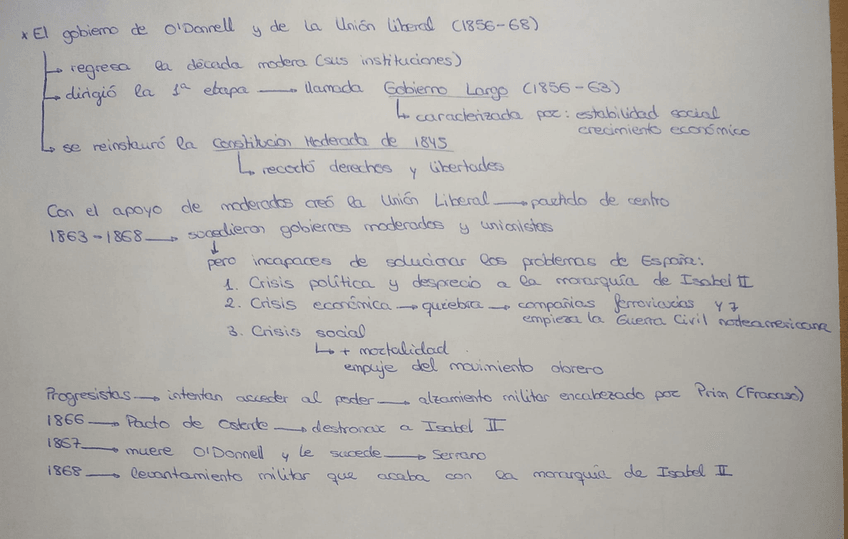 * El gobierno de O'Donnell y de la Unión Liberal (1856-68)
→ regresa la década modera (sus instituciones)
→ dirigió la 1ª etapa → llamada Gobierno Largo (1856-63)
→ caracterizada por: estabilidad social
crecimiento económico
→ se reinstauró la Constitución Moderada de 1845
→ recortó derechos y libertades
Con el apoyo de moderados creó la Unión Liberal → partido de centro
1863-1868 → sucedieron gobiernos moderados y unionistas
↓
pero incapaces de solucionar los problemas de España:
1. Crisis política y desprecio a la monarquía de Isabel II
2. Crisis económica → quiebra → compañías ferroviarias y
empieza la Guerra Civil norteamericana
3. Crisis social
→ + mortalidad
empuje del movimiento obrero
Progresistas → intentan acceder al poder → alzamiento militar encabezado por Prim (Fracaso)
1866 → Pacto de Ostende → destronar a Isabel II
1867 → muere O'Donnell y le sucede → Serrano
1868 → levantamiento militar que acaba con la monarquía de Isabel II